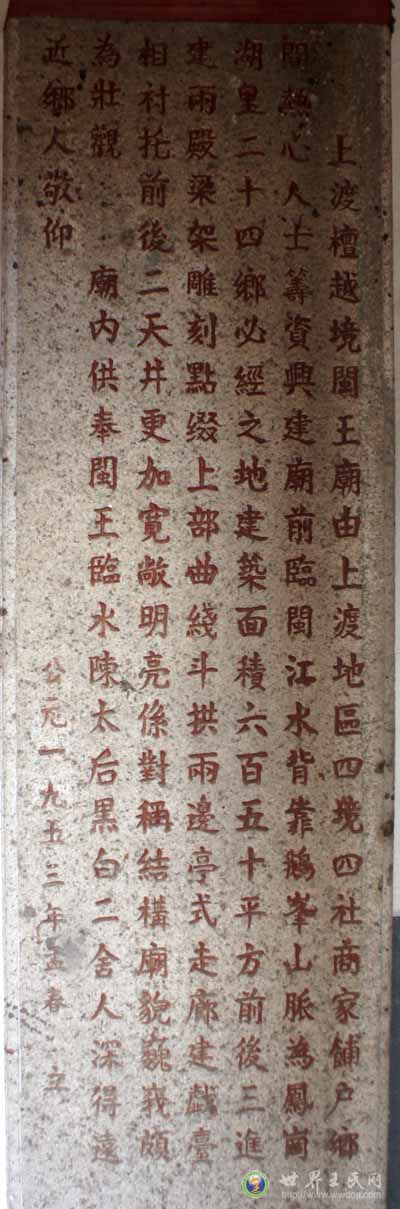 上渡檀越境閩王廟由上渡地區四境四社商家鋪户鄉
間熱心人士籌資興建廟前臨閩江水背靠鵝峯山脈為鳳崗
湖里二十四鄉必經之地建築面積六百五十平方前後三進
建兩殿梁架雕刻點缀上部曲綫斗拱兩邊亭式走廊建戲臺
相衬托前後二天井更加寬敞明亮係對稱結構廟貌巍峩頗
為壯觀 廟内供奉閩王臨水陳太后黑白二舍人深得遠
近鄉人敬仰
公元一九五三年孟春 立
世界王氏网
http://www.wwdoa.com